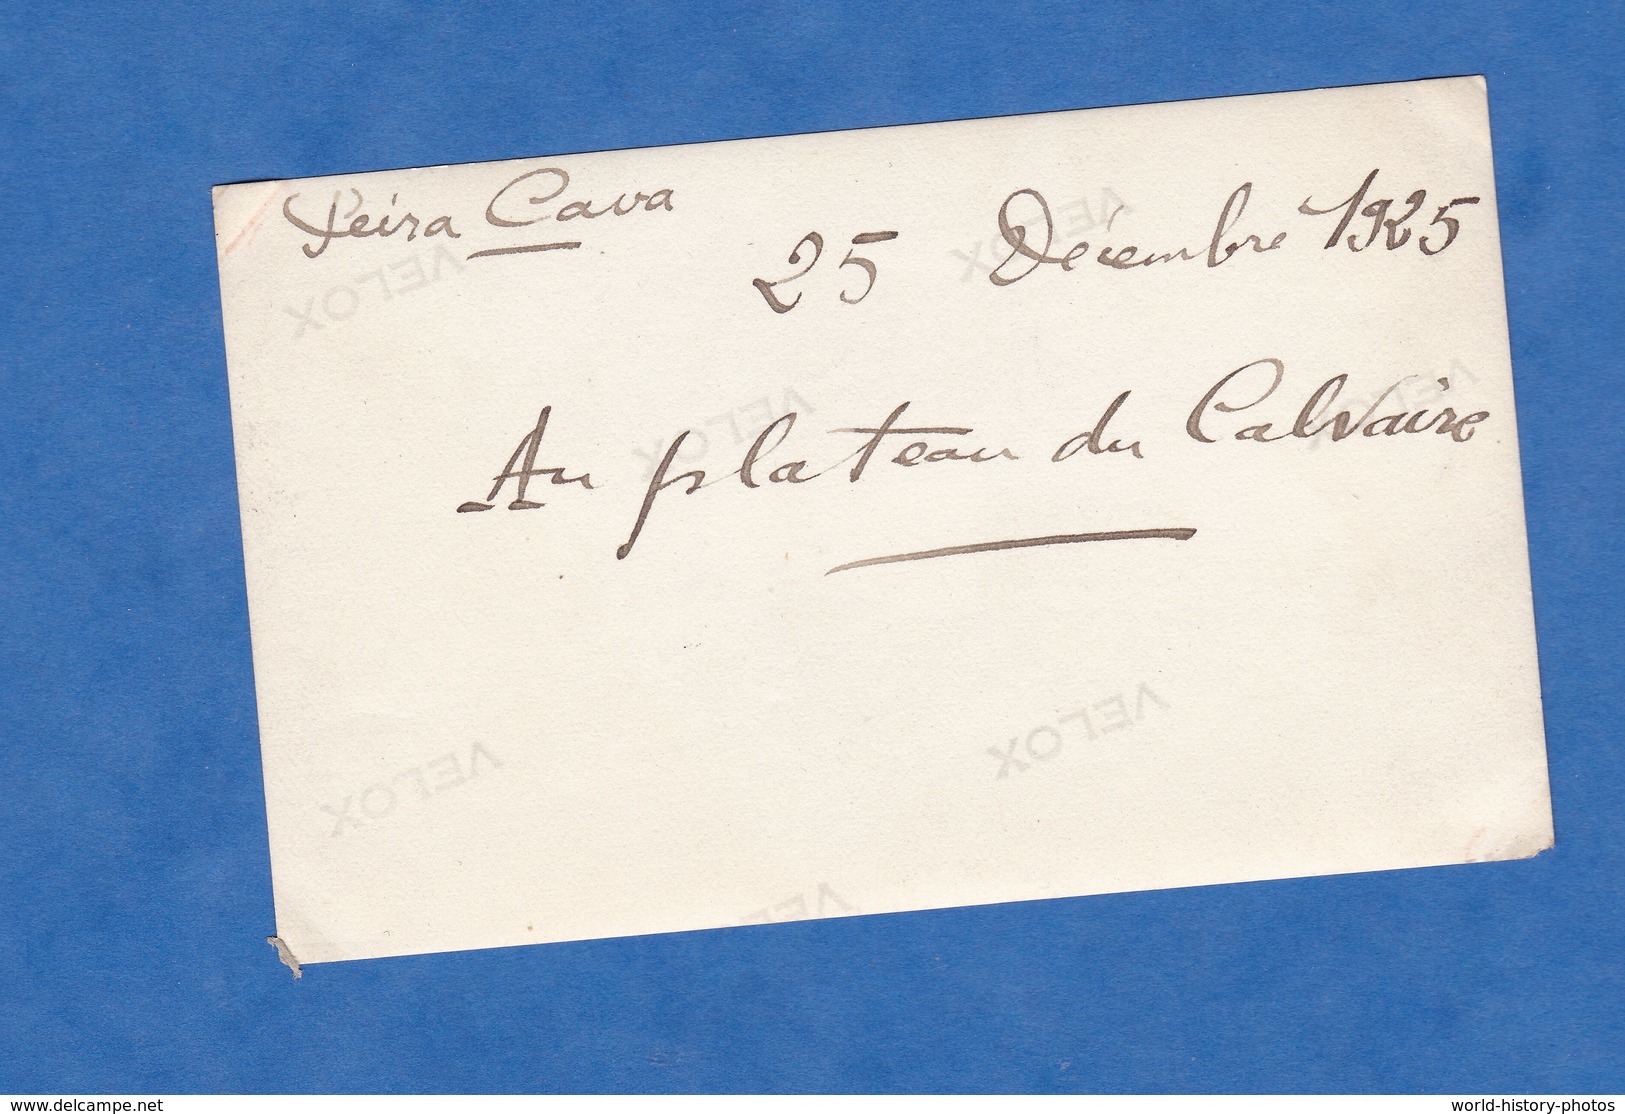 Peira Cava
25 Décembre 1925
Au plateau du Calvaire
VELOX
VELOX
VELOX
VELOX
VELOX
VELOX
VELOX
www.delcampe.net
world-history-photos